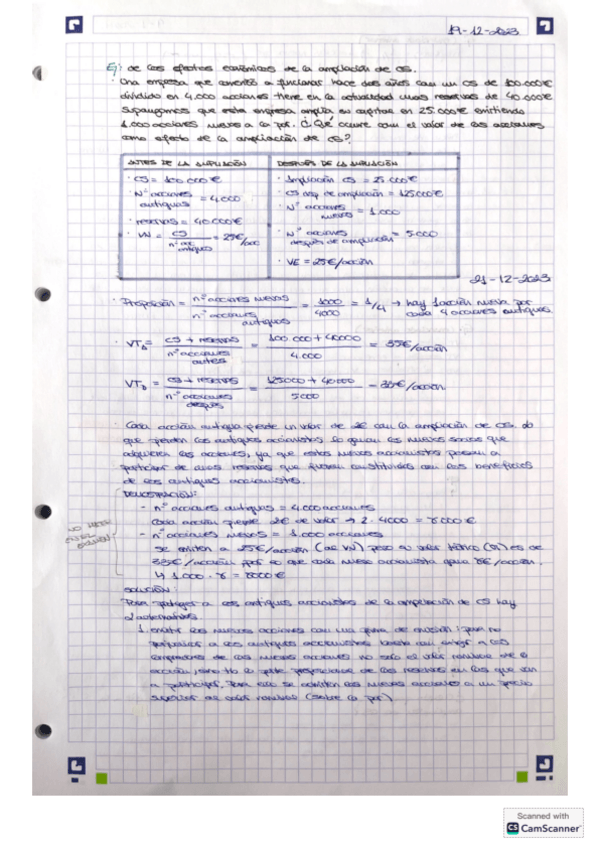 19-12-2023
Ej: de los efectos económicos de la ampliación de CS.
Una empresa que comenzó a funcionar hace dos años con un CS de 100.000€
dividido en 4.000 acciones tiene en la actualidad unas reservas de 40.000€
Supongamos que esta empresa amplía su capital en 25.000€ emitiendo
1.000 acciones nuevas a la par. ¿Qué ocurre con el valor de las acciones
como efecto de la ampliación de CS?
ANTES DE LA AMPLIACIÓN
· CS = 100.000€
· Nº acciones antiguas = 4.000
· reservas = 40.000€
· VN = CS / nº acc. antiguas = 25€/acc
DESPUÉS DE LA AMPLIACIÓN
· Ampliación CS = 25.000€
· CS desp de ampliación = 125.000€
· Nº acciones nuevas = 1.000
· Nº acciones después de ampliación = 5.000
· VE = 25€/acción
21-12-2023
· Proporción = nº acciones nuevas / nº acciones antiguas = 1000 / 4000 = 1/4 → hay 1 acción nueva por
cada 4 acciones antiguas.
· VTa = CS + reservas / nº acciones antes = 100.000 + 40000 / 4.000 = 35€/acción
VTD = CS + reservas / nº acciones después = 125000 + 40.000 / 5000 = 33€/acción
· Cada acción antigua pierde un valor de 2€ con la ampliación de CS. Lo
que pierden los antiguos accionistas lo ganan los nuevos socios que
adquieren las acciones, ya que estos nuevos accionistas pasan a
participar de unas reservas que fueron constituidas con los beneficios
de los antiguos accionistas.
DEMOSTRACIÓN:
NO HACER
EN EL
EXAMEN
- nº acciones antiguas = 4.000 acciones
cada acción pierde 2€ de valor → 2 · 4000 = 8000€
- nº acciones nuevas = 1.000 acciones
se emiten a 25€/acción (de VN) pero su valor teórico es de
33€/acción por lo que cada nuevo accionista gana 8€/acción.
↳ 1.000 · 8 = 8000€
SOLUCIÓN:
Para proteger a los antiguos accionistas de la ampliación de CS hay
2 alternativas.
1. emitir las nuevas acciones con una prima de emisión: para no
perjudicar a los antiguos accionistas basta con exigir a los
compradores de las nuevas acciones no solo el valor nominal de la
acción, sino tb la parte proporcional de las reservas en las que van
a participar. Para ello se emiten las nuevas acciones a un precio
superior al valor nominal (sobre la par)
Scanned with
CS CamScanner